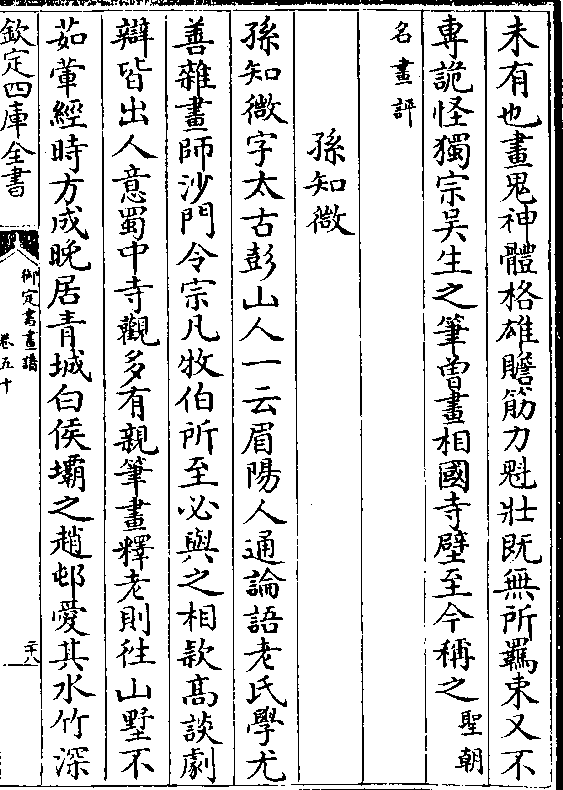 未有也畫鬼神體格雄贍筋力魁壯既無所羈束又不
專詭怪獨宗吴生之筆曽畫相國寺壁至今稱之聖朝
名畫評
孫知微
孫知微字太古彭山人一云眉陽人通論語老氏學尤
善雜畫師沙門令宗凡牧伯所至必與之相欵高談劇
辯皆出人意蜀中寺觀多有親筆畫釋老則徃山墅不
茹葷經時方成晚居青城白侯壩之趙邨愛其水竹深
欽定四庫全書
御定書畫譜
卷五十
二十八